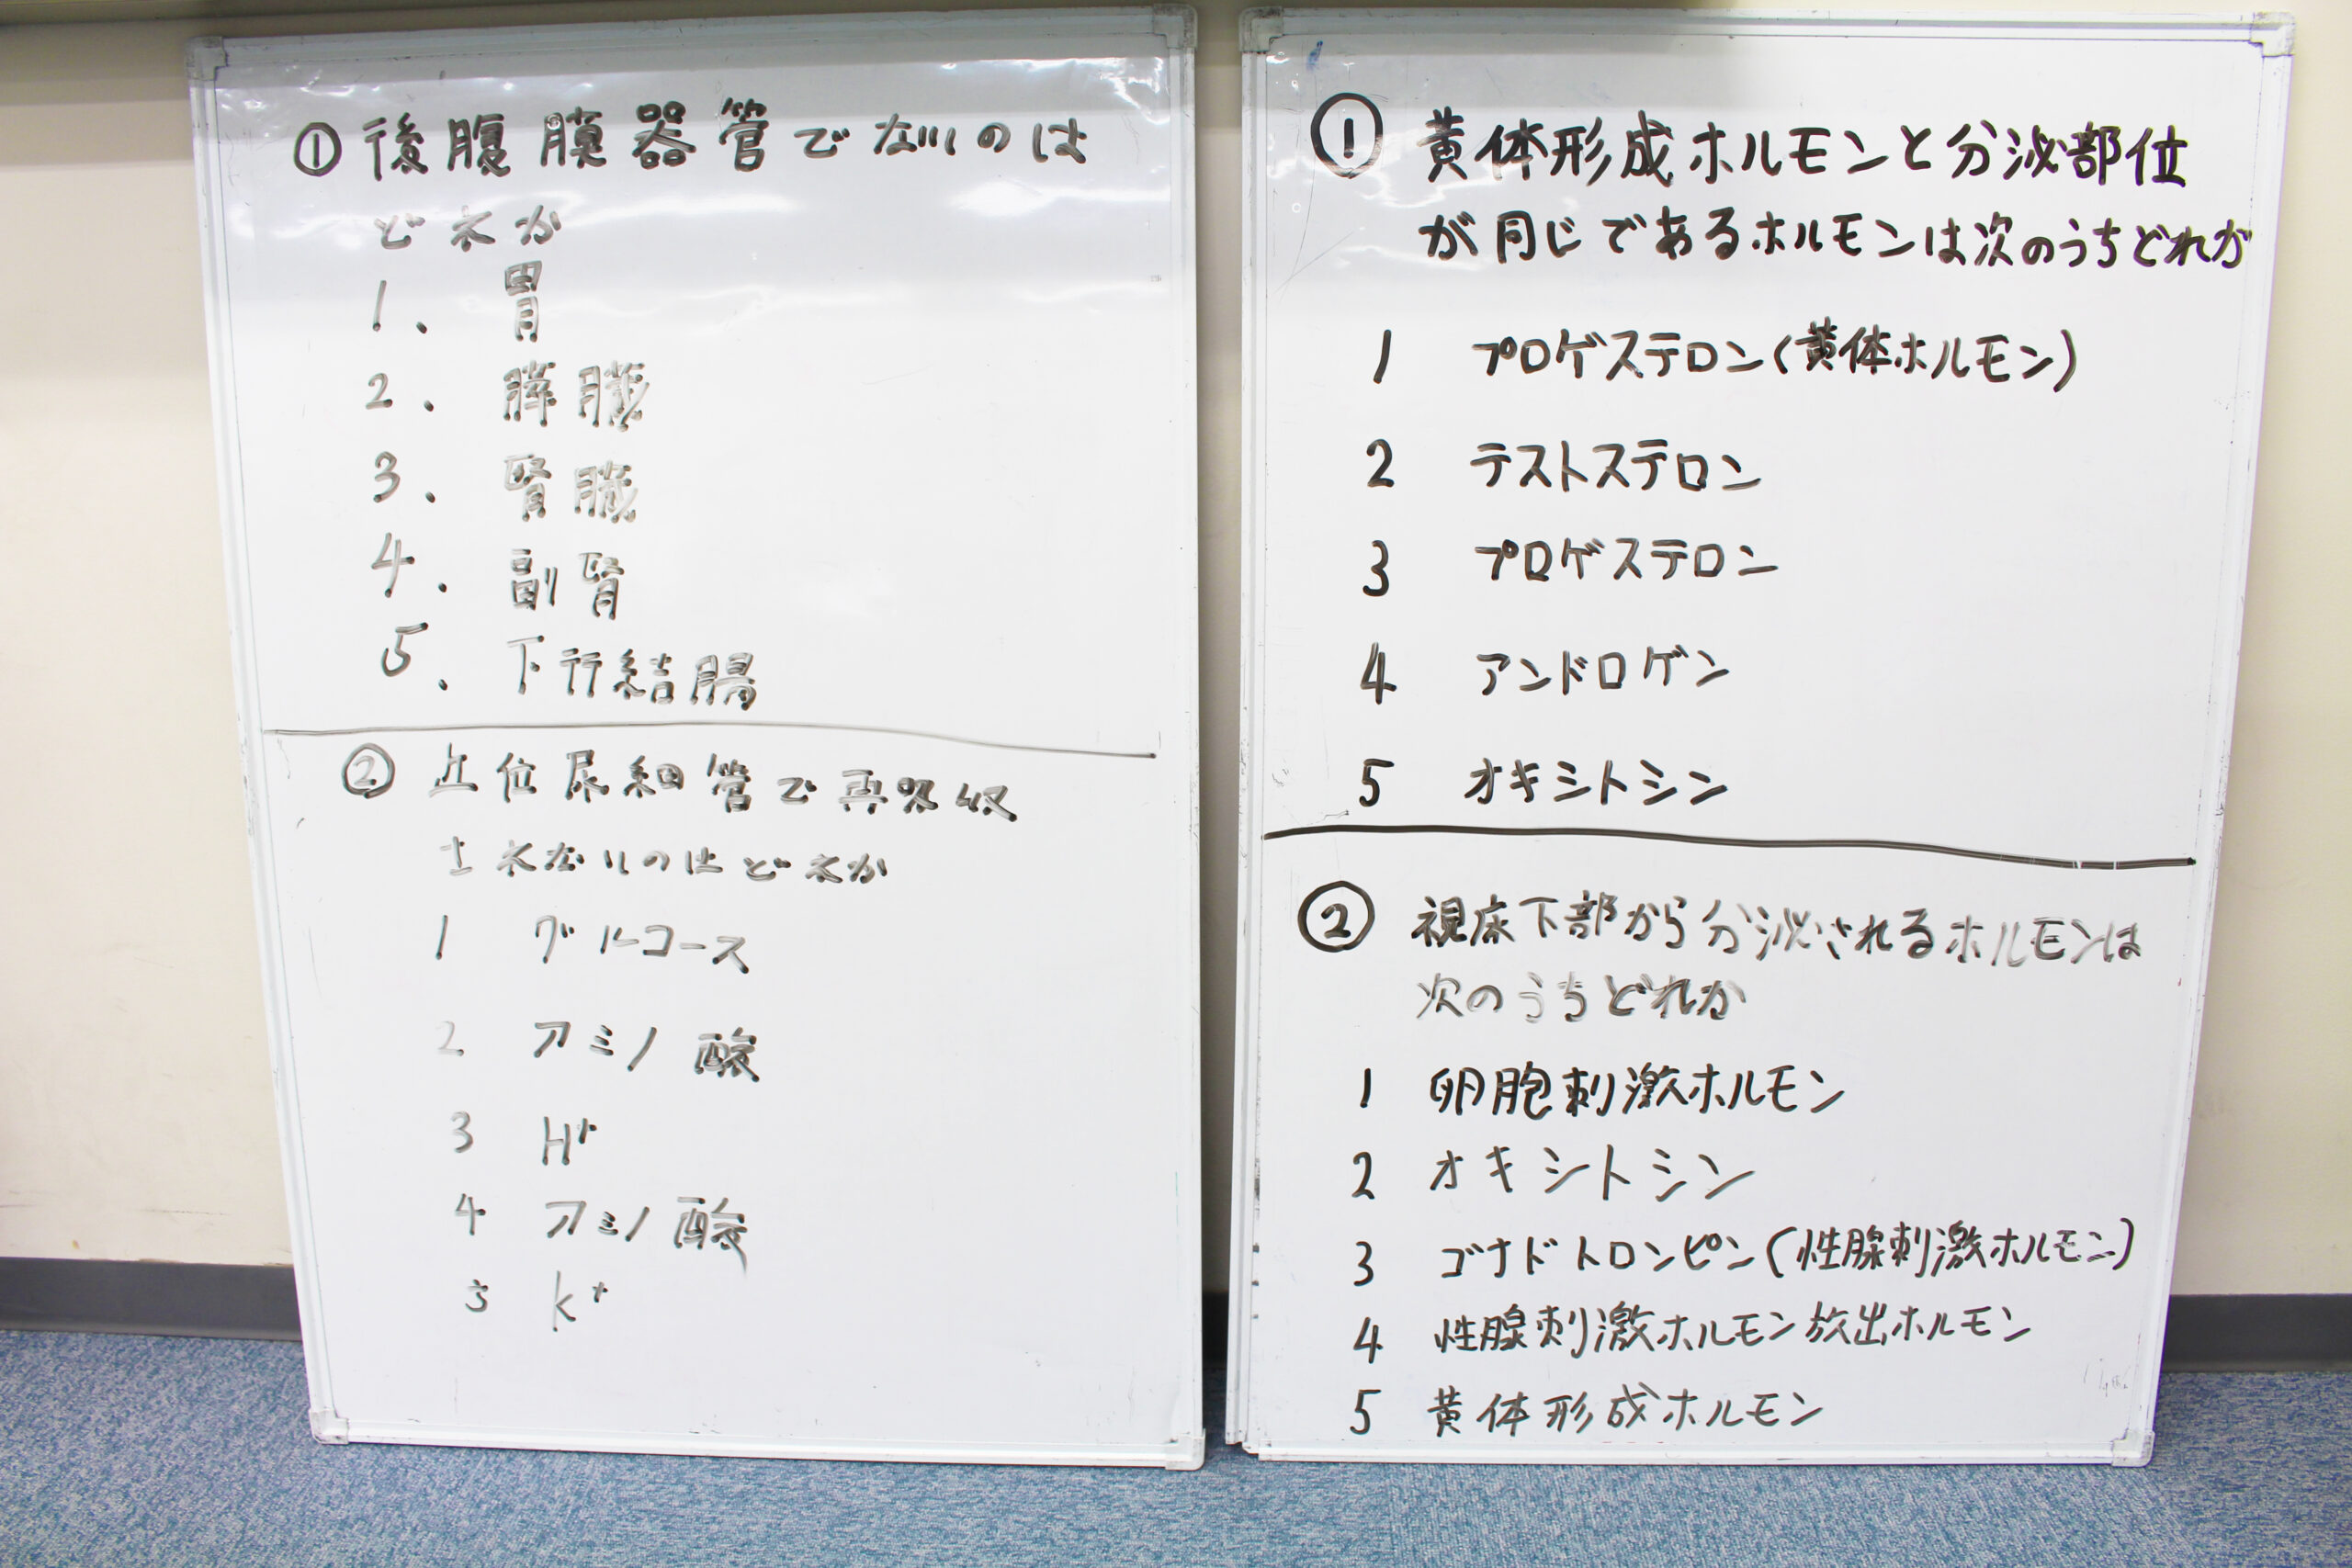 ① 後腹膜器管でないのは
どれか
1. 胃
2. 膵臓
3. 腎臓
4. 副腎
5. 下行結腸
② 近位尿細管で再吸収
されないのはどれか
1 グルコース
2 アミノ酸
3 H⁺
4 アミノ酸
5 K⁺
① 黄体形成ホルモンと分泌部位
が同じであるホルモンは次のうちどれか
1 プロゲステロン(黄体ホルモン)
2 テストステロン
3 プロゲステロン
4 アンドロゲン
5 オキシトシン
② 視床下部から分泌されるホルモンは
次のうちどれか
1 卵胞刺激ホルモン
2 オキシトシン
3 ゴナドトロンピン(性腺刺激ホルモン)
4 性腺刺激ホルモン放出ホルモン
5 黄体形成ホルモン